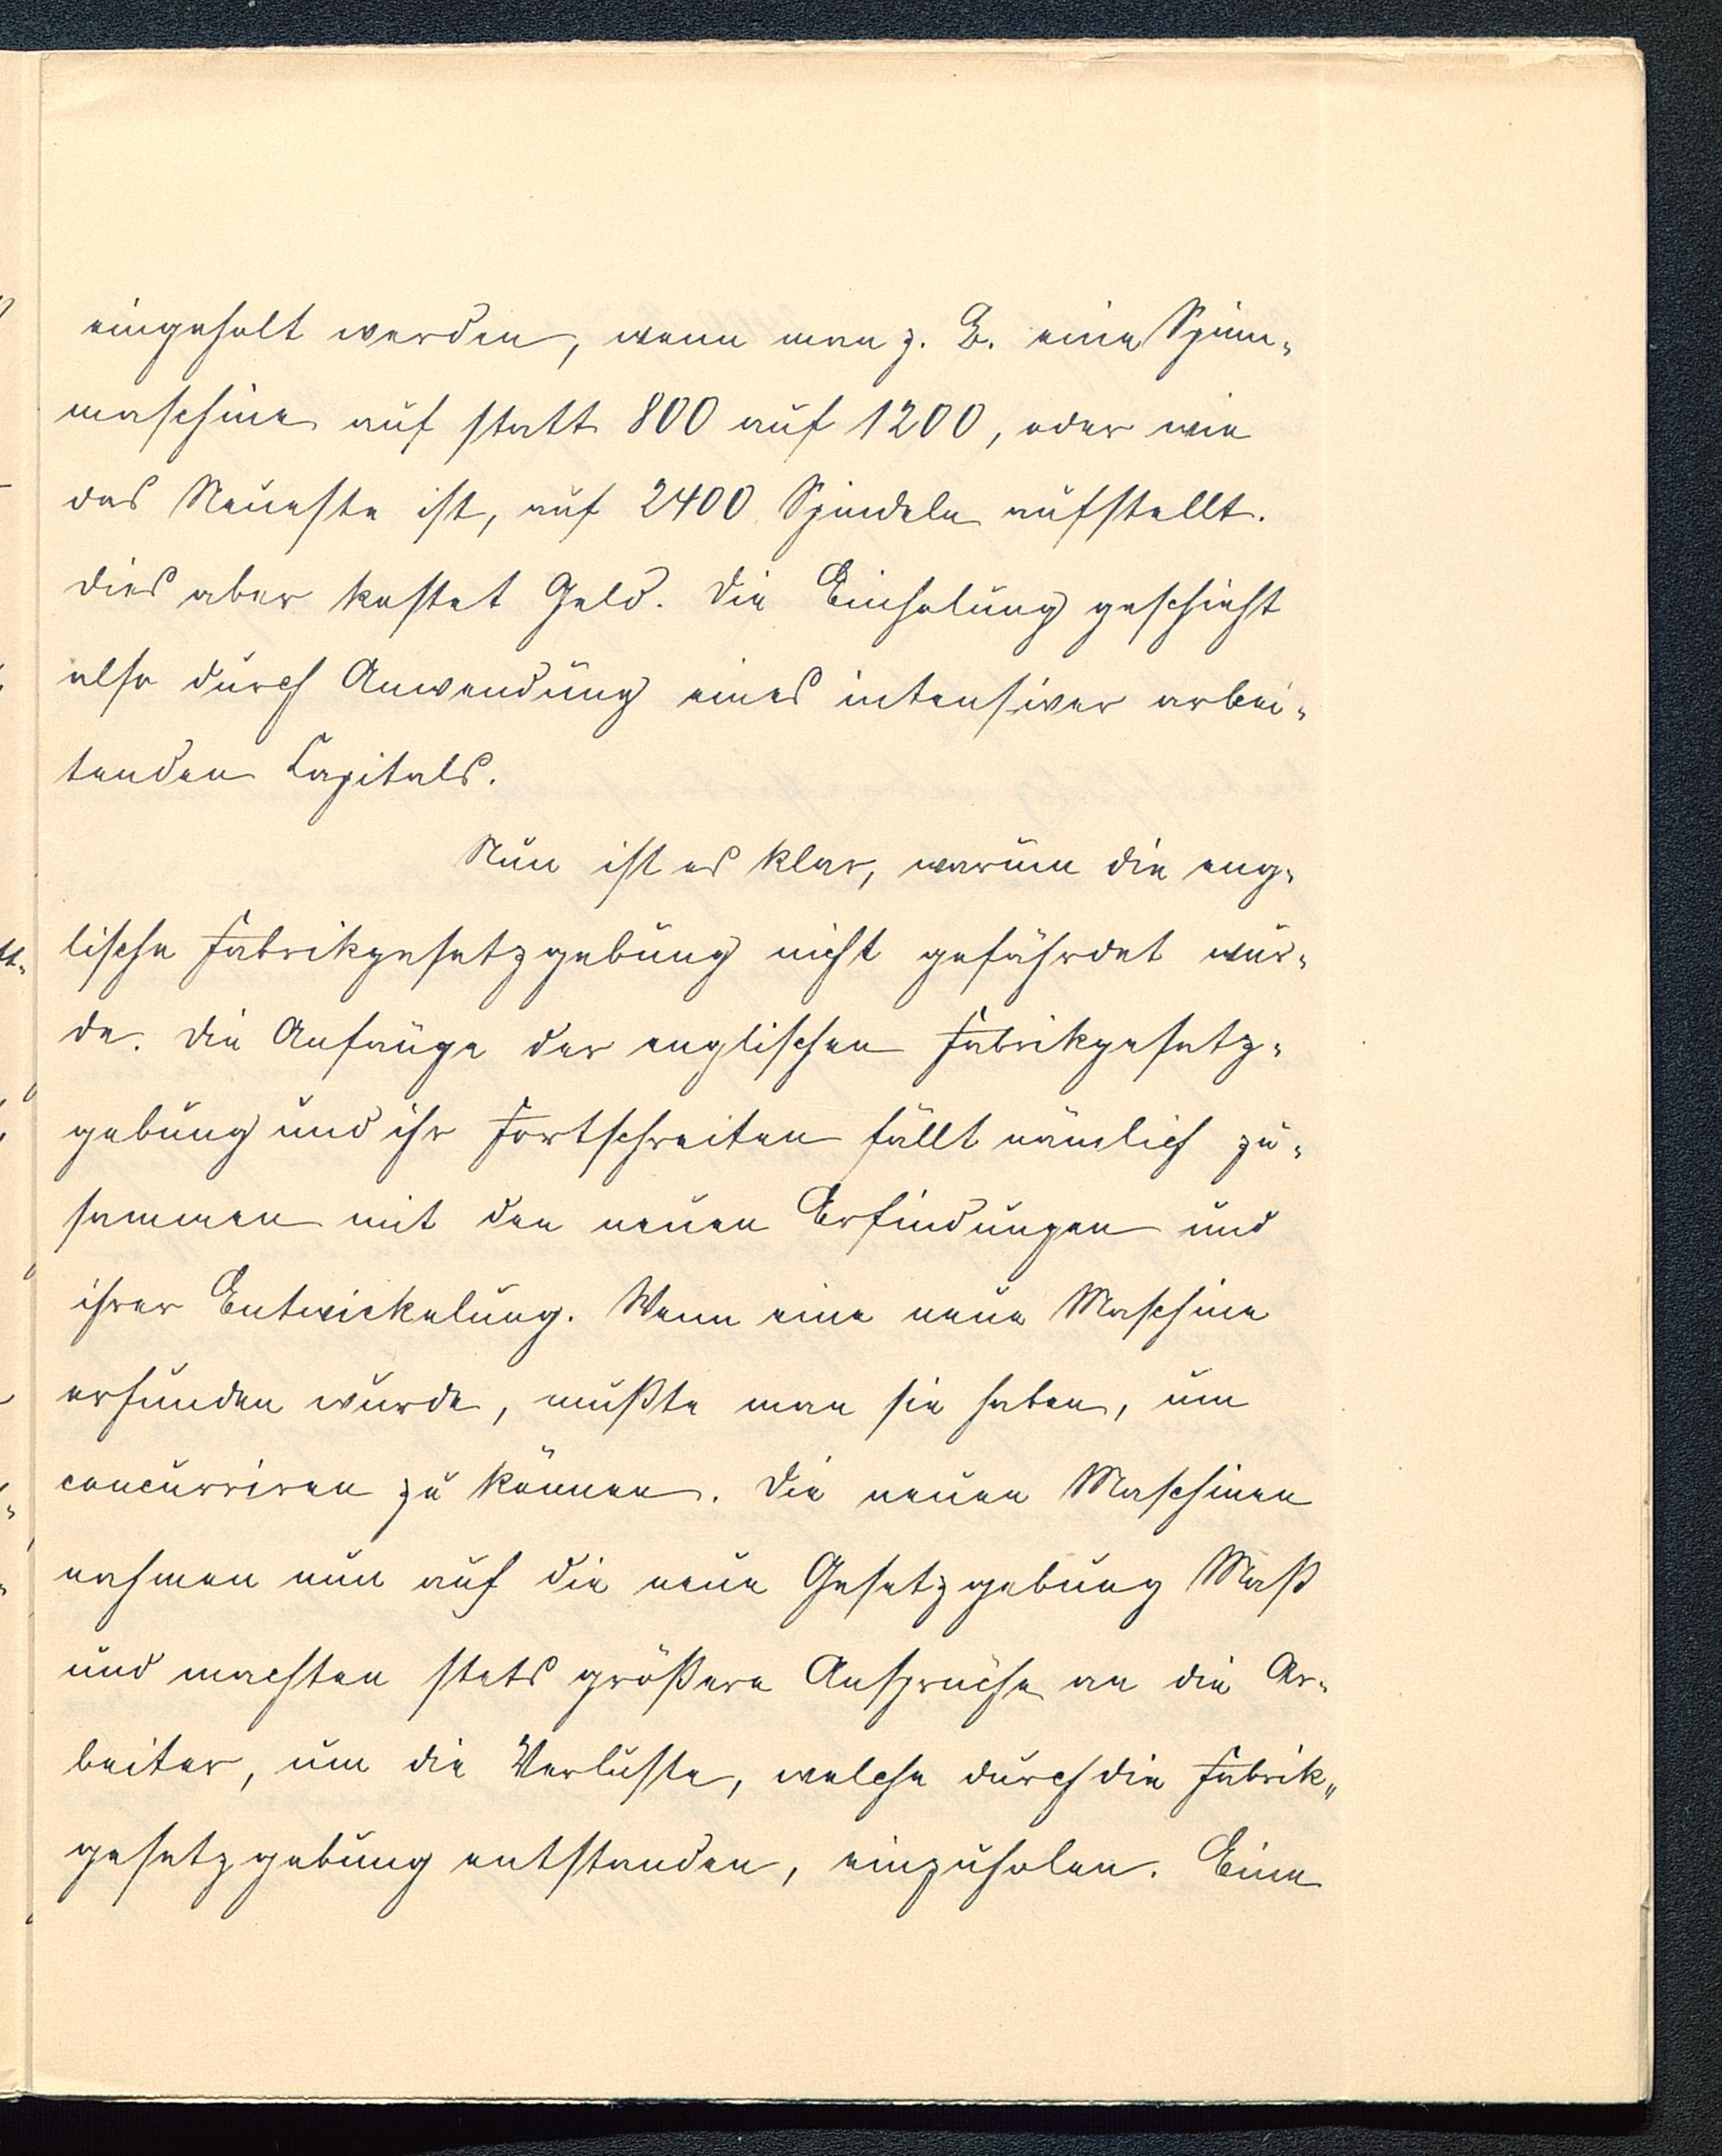 eingeholt werden, wenn man z. B. eine Spinn-
maschine auf statt 800 auf 1200, oder wie
das Neueste ist, auf 2400 Spindeln aufstellt.
Dies aber kostet Geld. Die Einholung geschieht
also durch Anwendung eines intensiver arbei-
tenden Capitals.
Nun ist es klar, warum die eng-
lische Fabrikgesetzgebung nicht gefährdet wur-
de. Die Anfänge der englischen Fabrikgesetz-
gebung und ihr Fortschreiten fällt nämlich zu-
sammen mit den neuen Erfindungen und
ihrer Entwickelung. Wenn eine neue Maschine
erfunden wurde, mußte man sie haben, um
concurriren zu können. Die neuen Maschinen
nahmen nun auf die neue Gesetzgebung Maß
und machten stets größere Ansprüche an die Ar-
beiter, um die Verluste, welche durch die Fabrik-
gesetzgebung entstanden, einzuholen. Eine